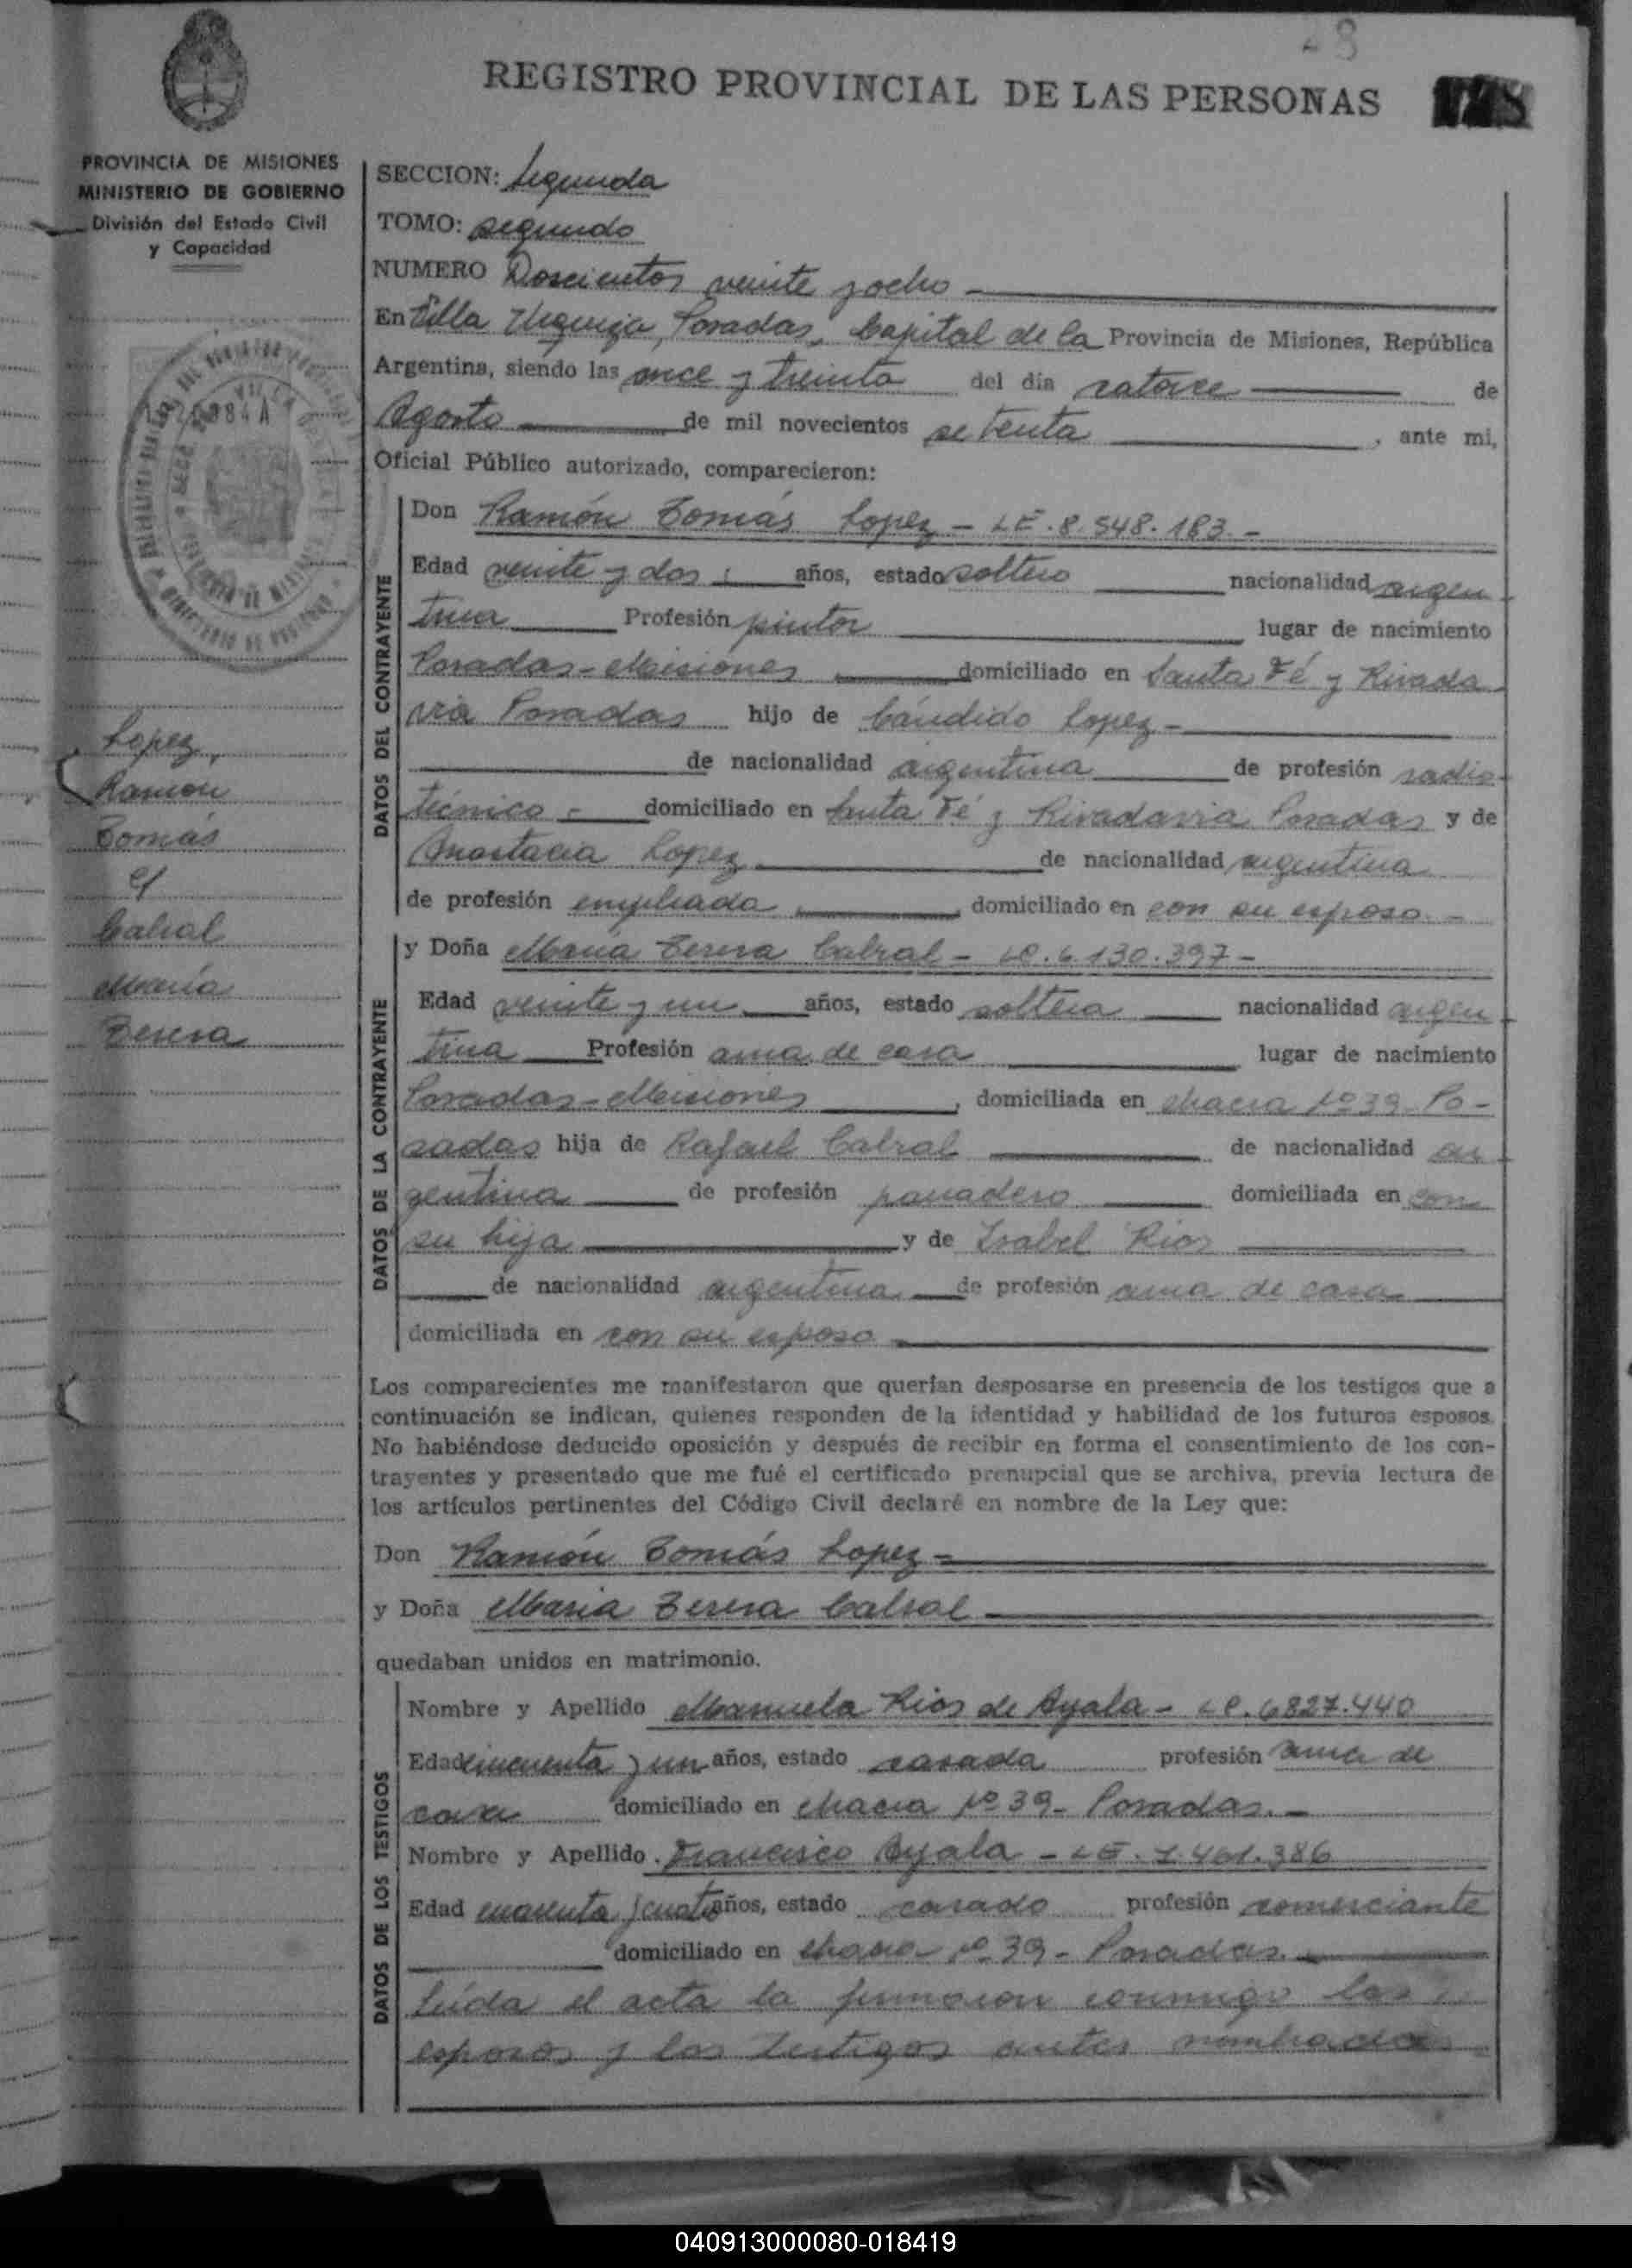 REGISTRO PROVINCIAL DE LAS PERSONAS
PROVINCIA DE MISIONES
MINISTERIO DE GOBIERNO
División del Estado Civil
y Capacidad
SECCION: Segunda
TOMO: segundo
NUMERO Doscientos veinte y ocho
En Villa Urquiza, Posadas, Capital de la Provincia de Misiones, República
Argentina, siendo las once y treinta del día catorce de
Agosto de mil novecientos setenta, ante mi,
Oficial Público autorizado, comparecieron:
DATOS DEL CONTRAYENTE
Don Ramón Tomás Lopez - LE. 8.548.183.-
Edad veinte y dos años, estado soltero nacionalidad argen
tina Profesión pintor lugar de nacimiento
Posadas-Misiones domiciliado en Santa Fé y Rivada
via Posadas hijo de Cándido Lopez-
de nacionalidad argentina de profesión radio-
técnico - domiciliado en Santa Fé y Rivadavia Posadas y de
Anastacia Lopez de nacionalidad argentina
de profesión empleada, domiciliado en con su esposo.-
DATOS DE LA CONTRAYENTE
y Doña Maria Teresa Cabral - LC. 6.130.397-
Edad veinte y un años, estado soltera nacionalidad argen
tina Profesión ama de casa lugar de nacimiento
Posadas-Misiones, domiciliada en chacra Nº 39 Po-
sadas hija de Rafael Cabral de nacionalidad ar
gentina de profesión panadero domiciliada en con
su hija y de Isabel Rios
de nacionalidad argentina de profesión ama de casa
domiciliada en con su esposo
Los comparecientes me manifestaron que querían desposarse en presencia de los testigos que a
continuación se indican, quienes responden de la identidad y habilidad de los futuros esposos.
No habiéndose deducido oposición y después de recibir en forma el consentimiento de los con-
trayentes y presentado que me fué el certificado prenupcial que se archiva, previa lectura de
los artículos pertinentes del Código Civil declaré en nombre de la Ley que:
Don Ramón Tomás Lopez-
y Doña Maria Teresa Cabral
quedaban unidos en matrimonio.
DATOS DE LOS TESTIGOS
Nombre y Apellido Manuela Rios de Ayala - LC. 6827.440
Edad cincuenta y un años, estado casada profesión ama de
casa domiciliado en chacra Nº 39- Posadas.-
Nombre y Apellido. Francisco Ayala - LE. 1.461.386
Edad cuarenta y cuatro años, estado casado profesión comerciante
domiciliado en chacra Nº 39- Posadas.
Leída el acta la firmaron conmigo los
esposos y los testigos antes nombrados
Lopez,
Ramón
Tomás
c/
Cabral
María
Teresa
040913000080-018419